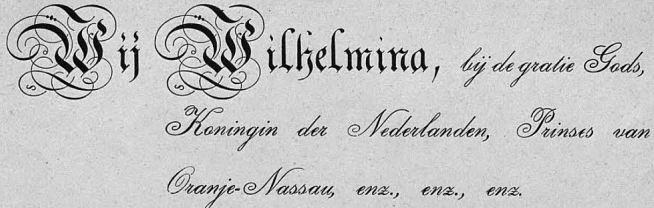 Wij Wilhelmina, bij de gratie Gods,
Koningin der Nederlanden, Prinses van
Oranje-Nassau, enz., enz., enz.